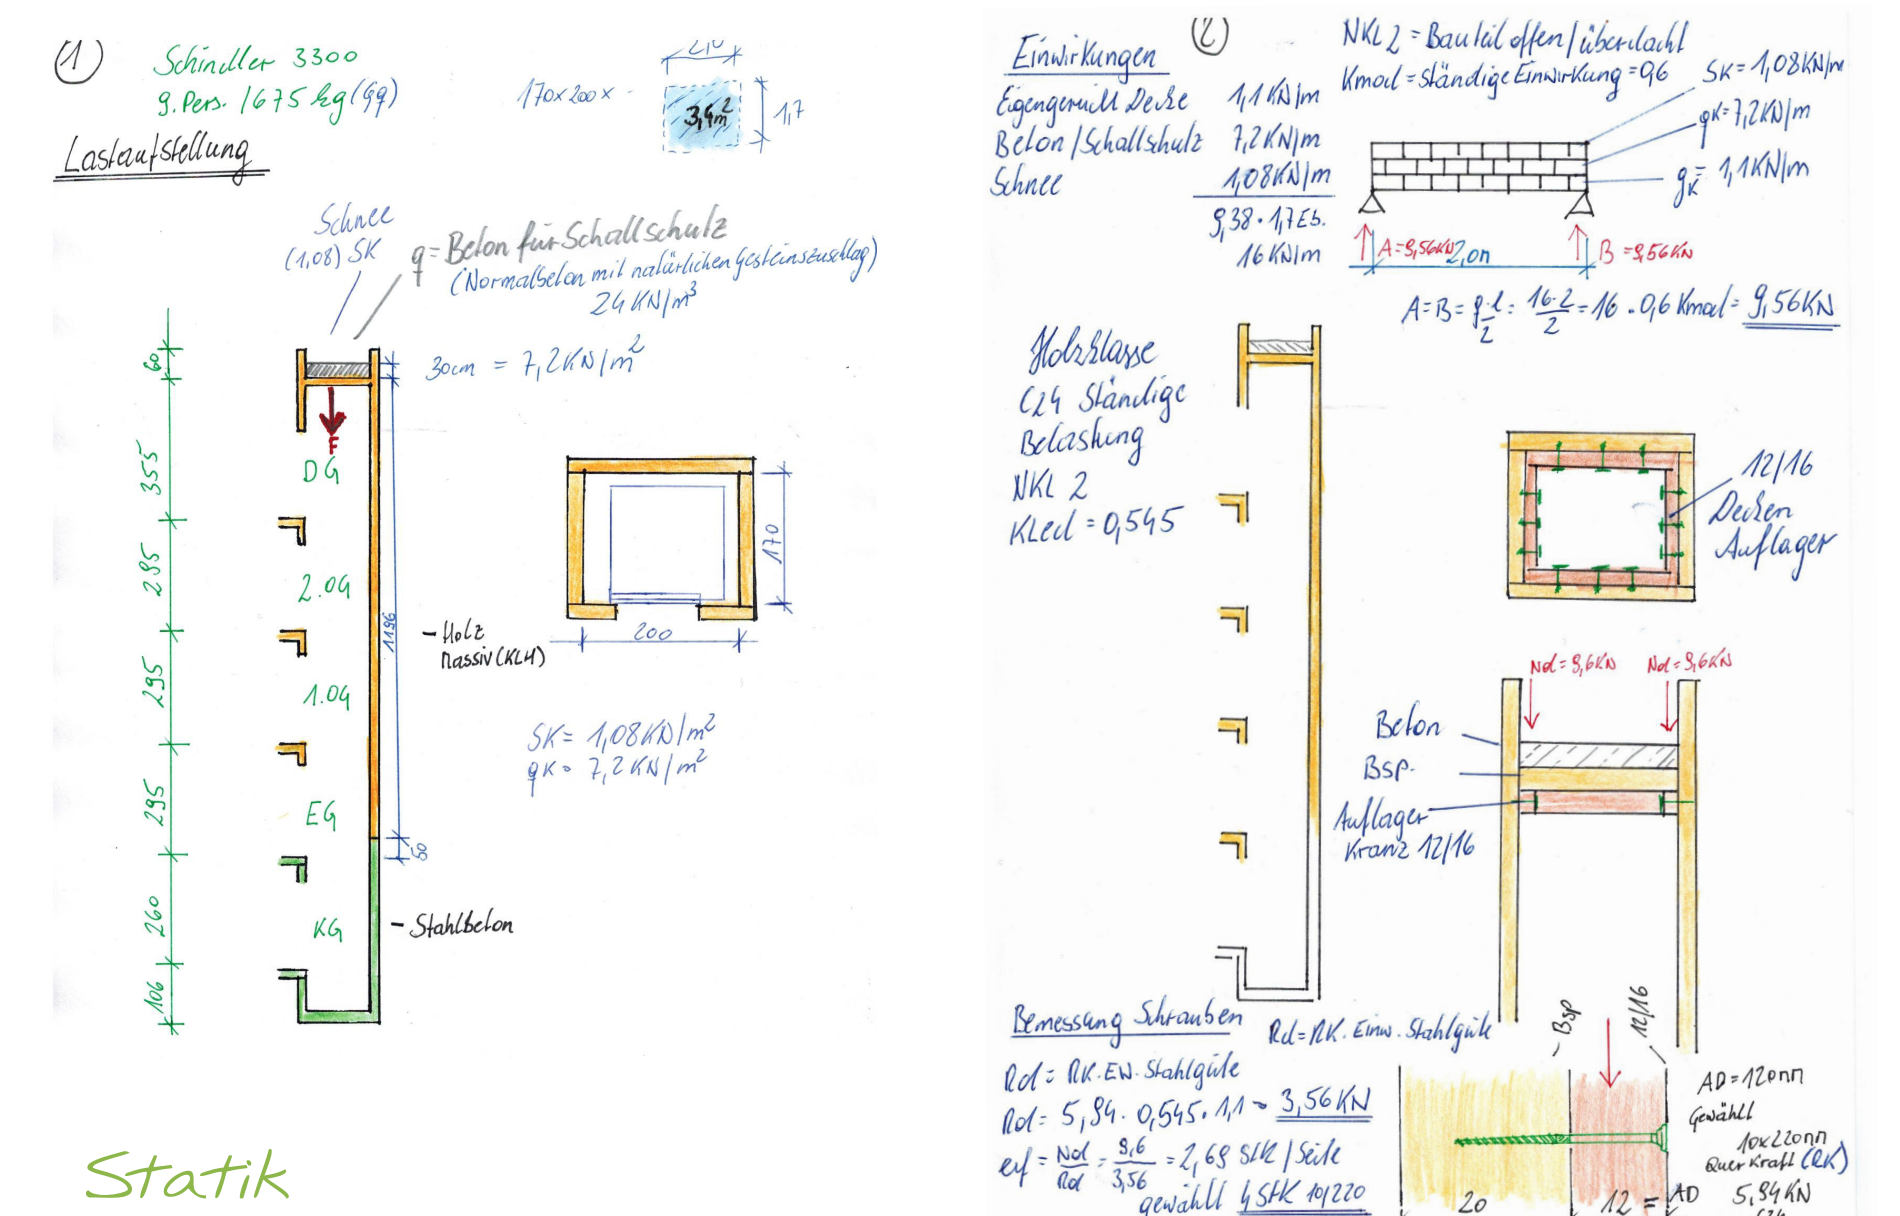 (1)
Schindler 3300
9.Pers. / 675 kg (Gq)
Lastaufstellung
170x200x
2,0
3,4m²
1,7
Schnee
(1,08) SK
q = Beton für Schallschutz
(Normalbeton mit natürlichen Gesteinszuschlag)
24 KN/m³
30cm = 7,2KN/m²
60
355
295
295
295
260
106
F
DG
2.OG
1.OG
EG
KG
1196
50
- Holz
Massiv (KLH)
- Stahlbeton
170
200
SK= 1,08KN/m²
qK= 7,2KN/m²
Statik
(2)
Einwirkungen
Eigengewicht Decke 1,1KN/m
Beton/Schallschutz 7,2KN/m
Schnee 1,08KN/m
9,38 · 1,7 Eb.
16KN/m
NKL 2 = Bauteil offen/überdacht
Kmod = ständige Einwirkung = 0,6
SK = 1,08KN/m
qK = 7,2KN/m
gK = 1,1KN/m
A = 9,56KN
2,0m
B = 9,56KN
A=B= q·l/2 = 16·2/2 = 16 · 0,6 Kmod = 9,56KN
Holzklasse
C24 Ständige
Belastung
NKL 2
KLed = 0,545
12/16
Decken
Auflager
Nd = 9,6KN
Nd = 9,6KN
Beton
BSP.
Auflager
Kranz 12/16
Bemessung Schrauben
Rd = RK. Einw. Stahlgüte
Rd = RK. EW. Stahlgüte
Rd = 5,94 · 0,545 · 1,1 = 3,56KN
erf = Nd/Rd = 9,6/3,56 = 2,69 Stk/Seite
gewählt 4 Stk 10/220
- BSP
12/16
AD = 120mm
Gewählt
10x220mm
Querkraft (RK)
5,94KN
20
12 = AD